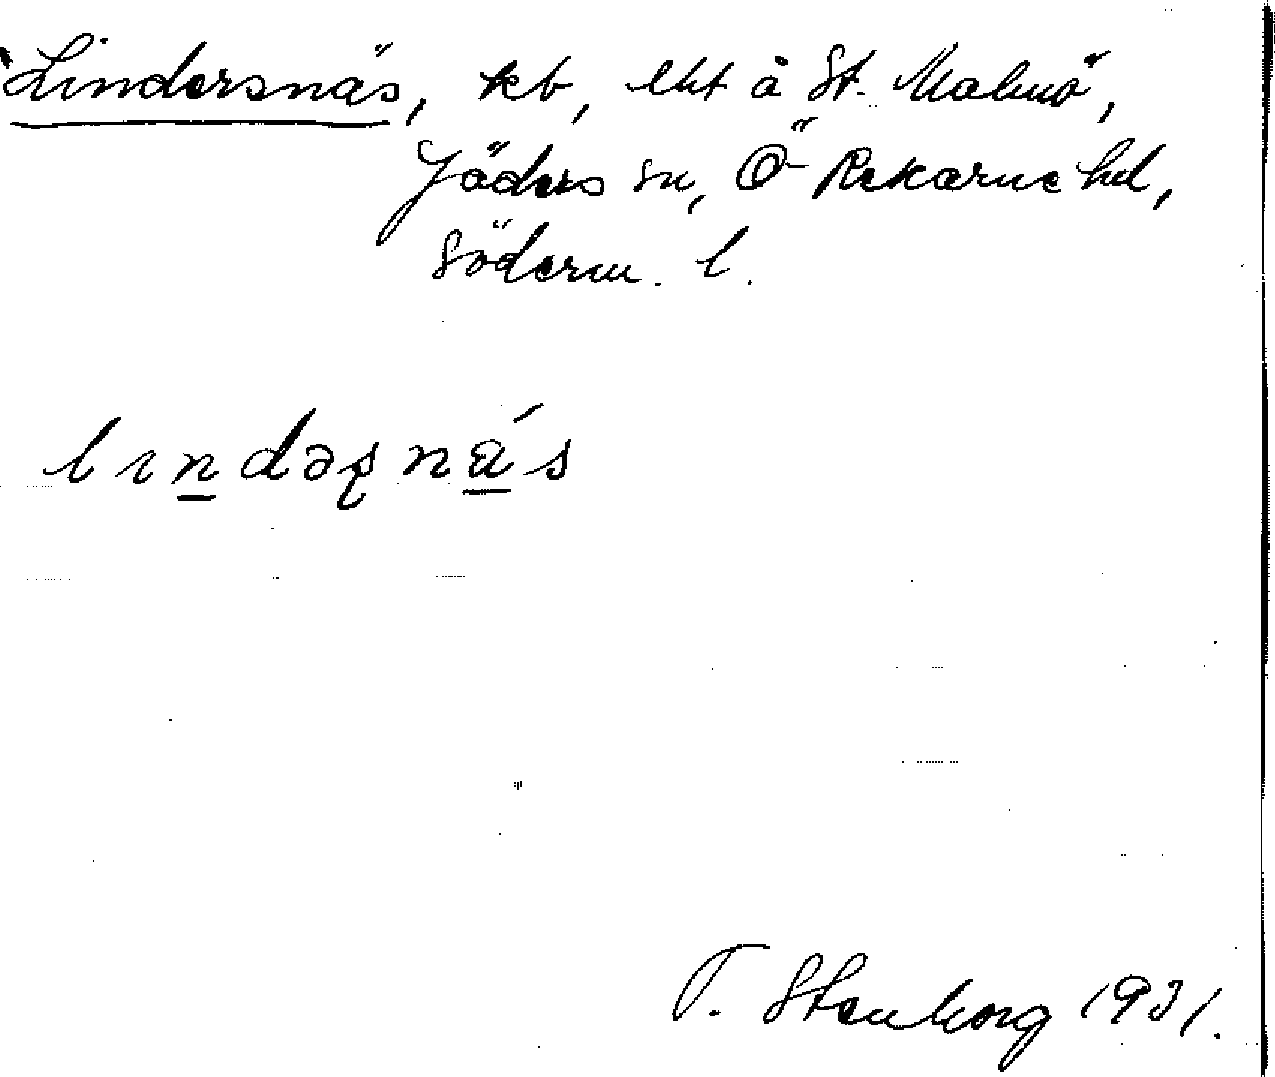 Lindersnäs, kb, lht å St. Malmö,
Jäders sn, Ö Rekarne hd,
Söderm. l.
lındəʂnä́s
T. Stenborg 1931.